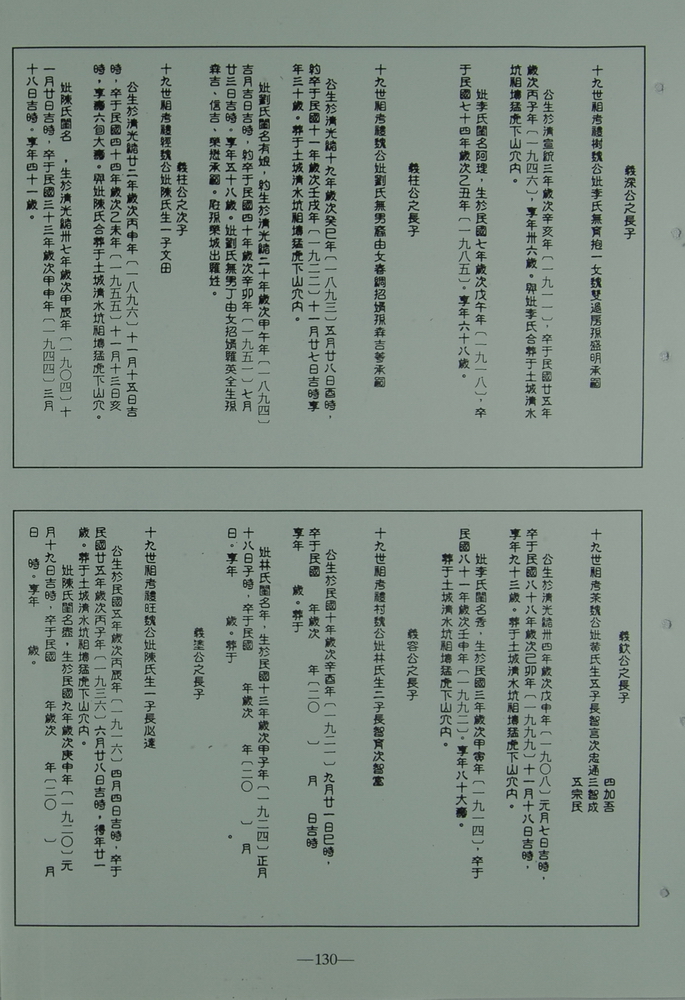 義深公之長子
十九世祖考禮樹魏公妣李氏無育抱一女魏雙過房孫盛明承嗣
公生於清宣統三年歲次辛亥年〔一九一一〕，卒于民國廿五年
歲次丙子年〔一九四六〕，享年卅六歲。與妣李氏合葬于土城清水
坑祖塘猛虎下山穴內。
妣李氏閨名阿瑳，生於民國七年歲次戊午年〔一九一八〕，卒
于民國七十四年歲次乙丑年〔一九八五〕。享年六十八歲。
義柱公之長子
十九世祖考禮魏公妣劉氏無男嗣由女春錦招婿孫森吉等承嗣
公生於清光緒十九年歲次癸巳年〔一八九三〕五月廿八日酉時，
約卒于民國十一年歲次壬戌年〔一九二二〕十一月廿七日吉時享
年三十歲。葬于土城清水坑祖塘猛虎下山穴內。
妣劉氏閨名有娘，約生於清光緒二十年歲次甲午年〔一八九四〕
吉月吉日吉時，約卒于民國四十年歲次辛卯年〔一九五一〕七月
廿三日吉時。享年五十八歲。妣劉氏無男丁由女招婿羅英全生孫
森吉、信吉、榮堂承嗣。府孫榮城出羅姓。
義柱公之次子
十九世祖考禮輕魏公妣陳氏生一子文田
公生於清光緒廿二年歲次丙申年〔一八九六〕十一月十五日吉
時，卒于民國四十四年歲次乙未年〔一九五五〕十一月十三日亥
時，享壽六個大壽。與妣陳氏合葬于土城清水坑祖塘猛虎下山穴。
妣陳氏閨名　，生於清光緒卅七年歲次甲辰年〔一九〇四〕十
一月廿日吉時，卒于民國三十三年歲次甲申年〔一九四四〕三月
十八日吉時。享年四十一歲。
義欽公之長子
四加吾
十九世祖考茶魏公妣黃氏生五子長智言次忠通三智成
五宗民
公生於清光緒卅四年歲次戊申年〔一九〇八〕元月七日吉時，
卒于民國八十八年歲次己卯年〔一九九九〕十一月十八日吉時，
享年九十三歲。葬于土城清水坑祖塘猛虎下山穴內。
妣李氏閨名香，生於民國三年歲次甲寅年〔一九一四〕，卒于
民國八十一年歲次壬申年〔一九九二〕。享年八十大壽。
葬于土城清水坑祖塘猛虎下山穴內。
義容公之長子
十九世祖考禮村魏公妣林氏生二子長智育次智富
公生於民國十年歲次辛酉年〔一九二一〕九月廿一日巳時，
卒于民國　年歲次　年〔二〇　〕　月　日吉時
享年　歲。葬于
妣林氏閨名年，生於民國十三年歲次甲子年〔一九二四〕正月
十八日子時，卒于民國　年歲次　年〔二〇　〕　月
日。享年　歲。葬于　。
義塗公之長子
十九世祖考禮旺魏公妣陳氏生一子長必達
公生於民國五年歲次丙辰年〔一九一六〕四月四日吉時，卒于
民國廿五年歲次丙子年〔一九三六〕六月廿八日吉時，得年廿一
歲。葬于土城清水坑祖塘猛虎下山穴內。
妣陳氏閨名盡，生於民國九年歲次庚申年〔一九二〇〕元
月十九日吉時，卒于民國　年歲次　年〔二〇　〕　月
日　時。享年　歲。
—130—